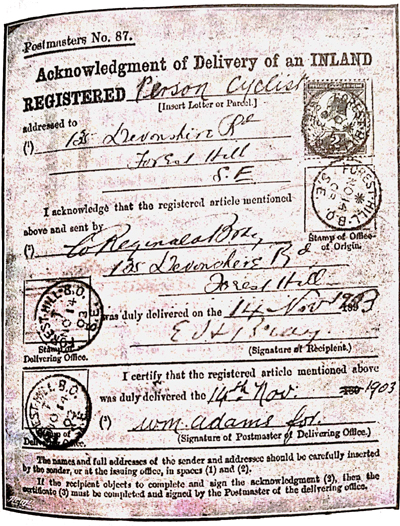 Postmasters No. 87.
Acknowledgment of Delivery of an INLAND
REGISTERED Person Cyclist
[Insert Letter or Parcel.]
addressed to
(¹) 135 Devonshire Rd
Forest Hill
S.E
I acknowledge that the registered article mentioned
above and sent by
(²) Reginald Bray
135 Devonshire Rd
Forest Hill
Stamp of Office
of Origin.
FOREST-HILL-B.O. S.E.
was duly delivered on the 14 Nov 1903
(Signature of Recipient.)
FOREST-HILL-B.O. S.E. NO 14 03
Stamp of
Delivering Office.
I certify that the registered article mentioned above
was duly delivered the 14th Nov. 1903
(³) Wm. Adams for.
(Signature of Postmaster of Delivering Office.)
FOREST-HILL B.O. S.E. NO 14 03
Stamp of
The names and full addresses of the sender and addressee should be carefully inserted
by the sender, or at the issuing office, in spaces (1) and (2).
If the recipient objects to complete and sign the acknowledgment (2), then the
certificate (3) must be completed and signed by the Postmaster of the delivering office.